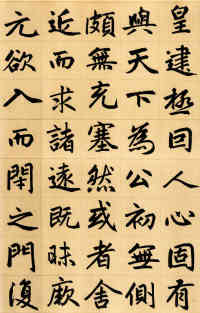 皇建極回人心固有
與天下為公初無側
頗無充塞然或者舍
近而求諸遠既昧厥
元欲入而閑之門復